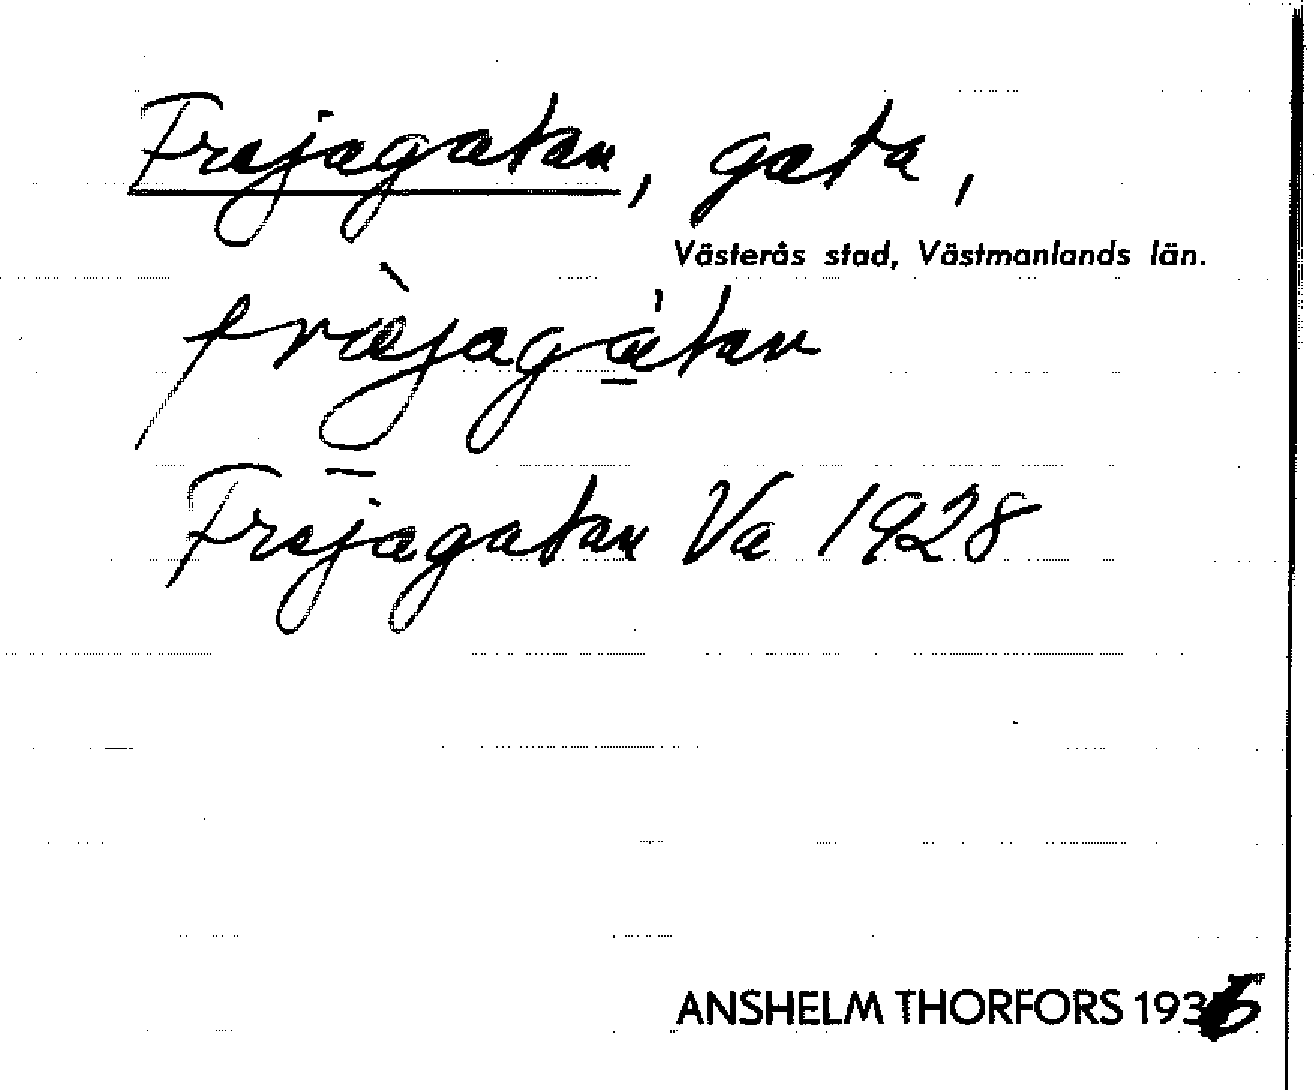 Frejagatan, gata,
Västerås stad, Västmanlands län.
fræ̀jagátan
Frejagatan Va 1928
ANSHELM THORFORS 1936